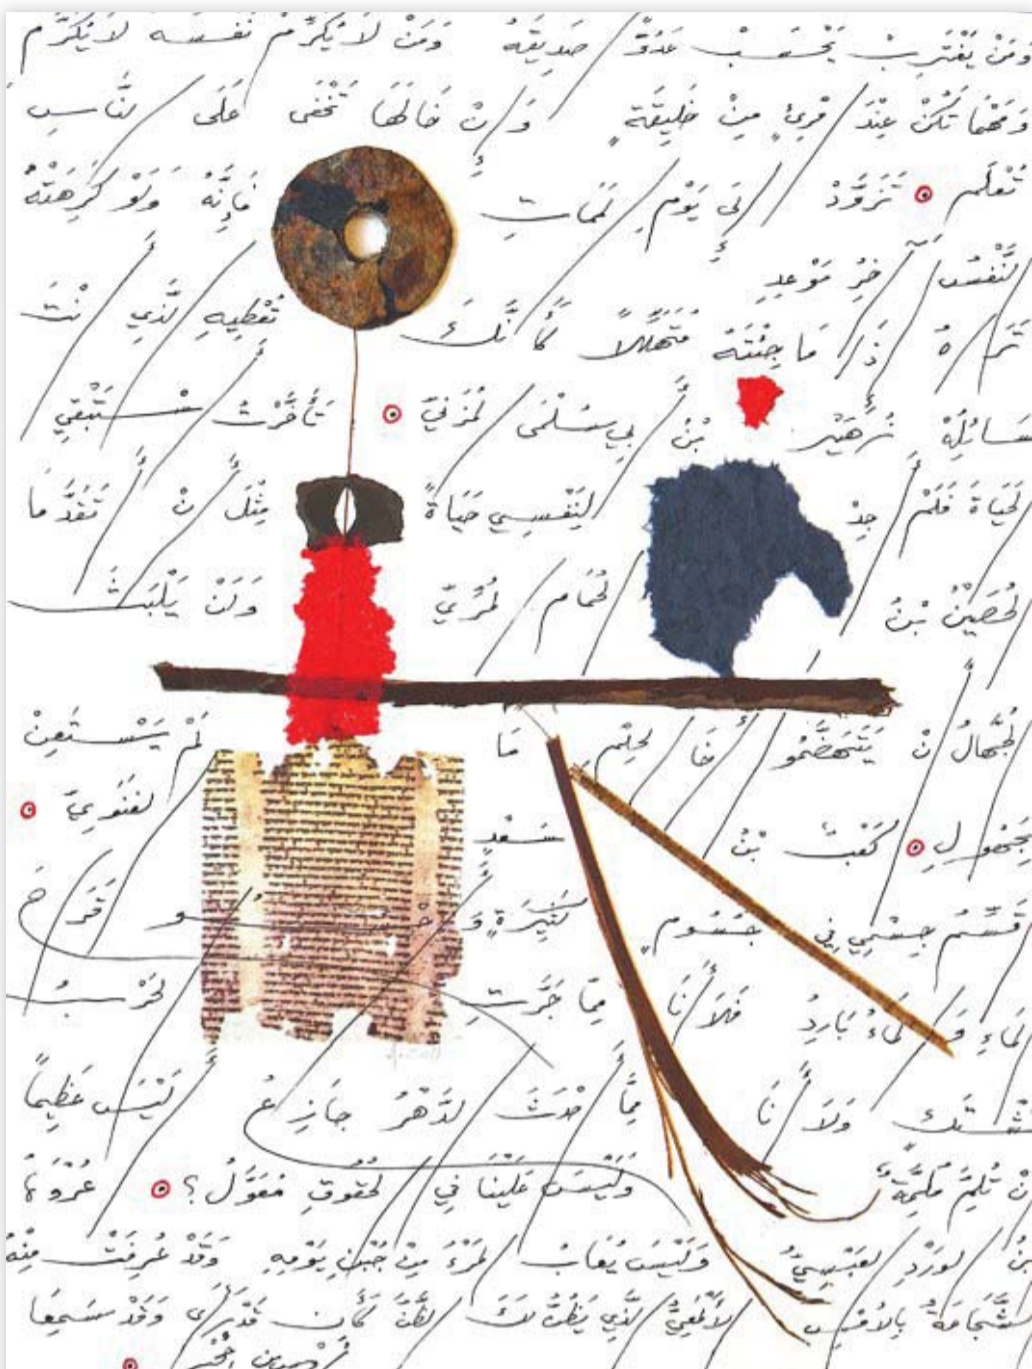 وَمَنْ يَغْتَرِبْ يَحْسَبْ عَدُوًّا صَدِيقَهُ وَمَنْ لَا يُكَرِّمْ نَفْسَهُ لَا يُكَرَّمِ
وَمَهْمَا تَكُنْ عِنْدَ امْرِئٍ مِنْ خَلِيقَةٍ وَإِنْ خَالَهَا تَخْفَى عَلَى النَّاسِ
تُعْلَمِ تَزَوَّدْ إِلَى يَوْمِ الْمَمَاتِ فَإِنَّهُ وَلَوْ كَرِهَتْهُ
النَّفْسُ آخِرُ مَوْعِدِ
تَرَاهُ إِذَا مَا جِئْتَهُ مُتَهَلِّلًا كَأَنَّكَ تُعْطِيهِ الَّذِي أَنْتَ
سَائِلُهْ زُهَيْرُ بْنُ أَبِي سُلْمَى الْمُزَنِيّ تَأَخَّرْتُ أَسْتَبْقِي
الْحَيَاةَ فَلَمْ أَجِدْ لِنَفْسِي حَيَاةً مِثْلَ أَنْ أَتَقَدَّمَا
الْحُصَيْنُ بْنُ الْحُمَامِ الْمُرِّيّ وَلَنْ يَلْبَثَ
الْجُهَّالُ أَنْ يَتَهَضَّمُوا أَخَا الْحِلْمِ مَا لَمْ يَسْتَعِنْ
بِجَهُولِ كَعْبُ بْنُ سَعْدٍ الْغَنَوِيّ
أُقَسِّمُ جِسْمِي فِي جُسُومٍ كَثِيرَةٍ وَأَحْسُو قَرَاحَ
الْمَاءِ وَالْمَاءُ بَارِدُ فَلَا أَنَا مِمَّا جَرَّتِ الْحَرْبُ
تَشْتَكِ وَلَا أَنَا مِمَّا أَحْدَثَ الدَّهْرُ جَازِعُ أَلَيْسَ عَظِيمًا
أَنْ تُلِمَّ مُلِمَّةٌ وَلَيْسَ عَلَيْنَا فِي الْحُقُوقِ مُعَوَّلُ؟ عُرْوَةُ
بْنُ الْوَرْدِ الْعَبْسِيّ وَلَيْسَ يُعَابُ الْمَرْءُ مِنْ جُبْنِ يَوْمِهِ وَقَدْ عُرِفَتْ مِنْهُ
الشَّجَاعَةُ بِالْأَمْسِ الْأَلْمَعِيُّ الَّذِي يَظُنُّ لَكَ الظَّنَّ كَأَنْ قَدْ رَأَى وَقَدْ سَمِعَا